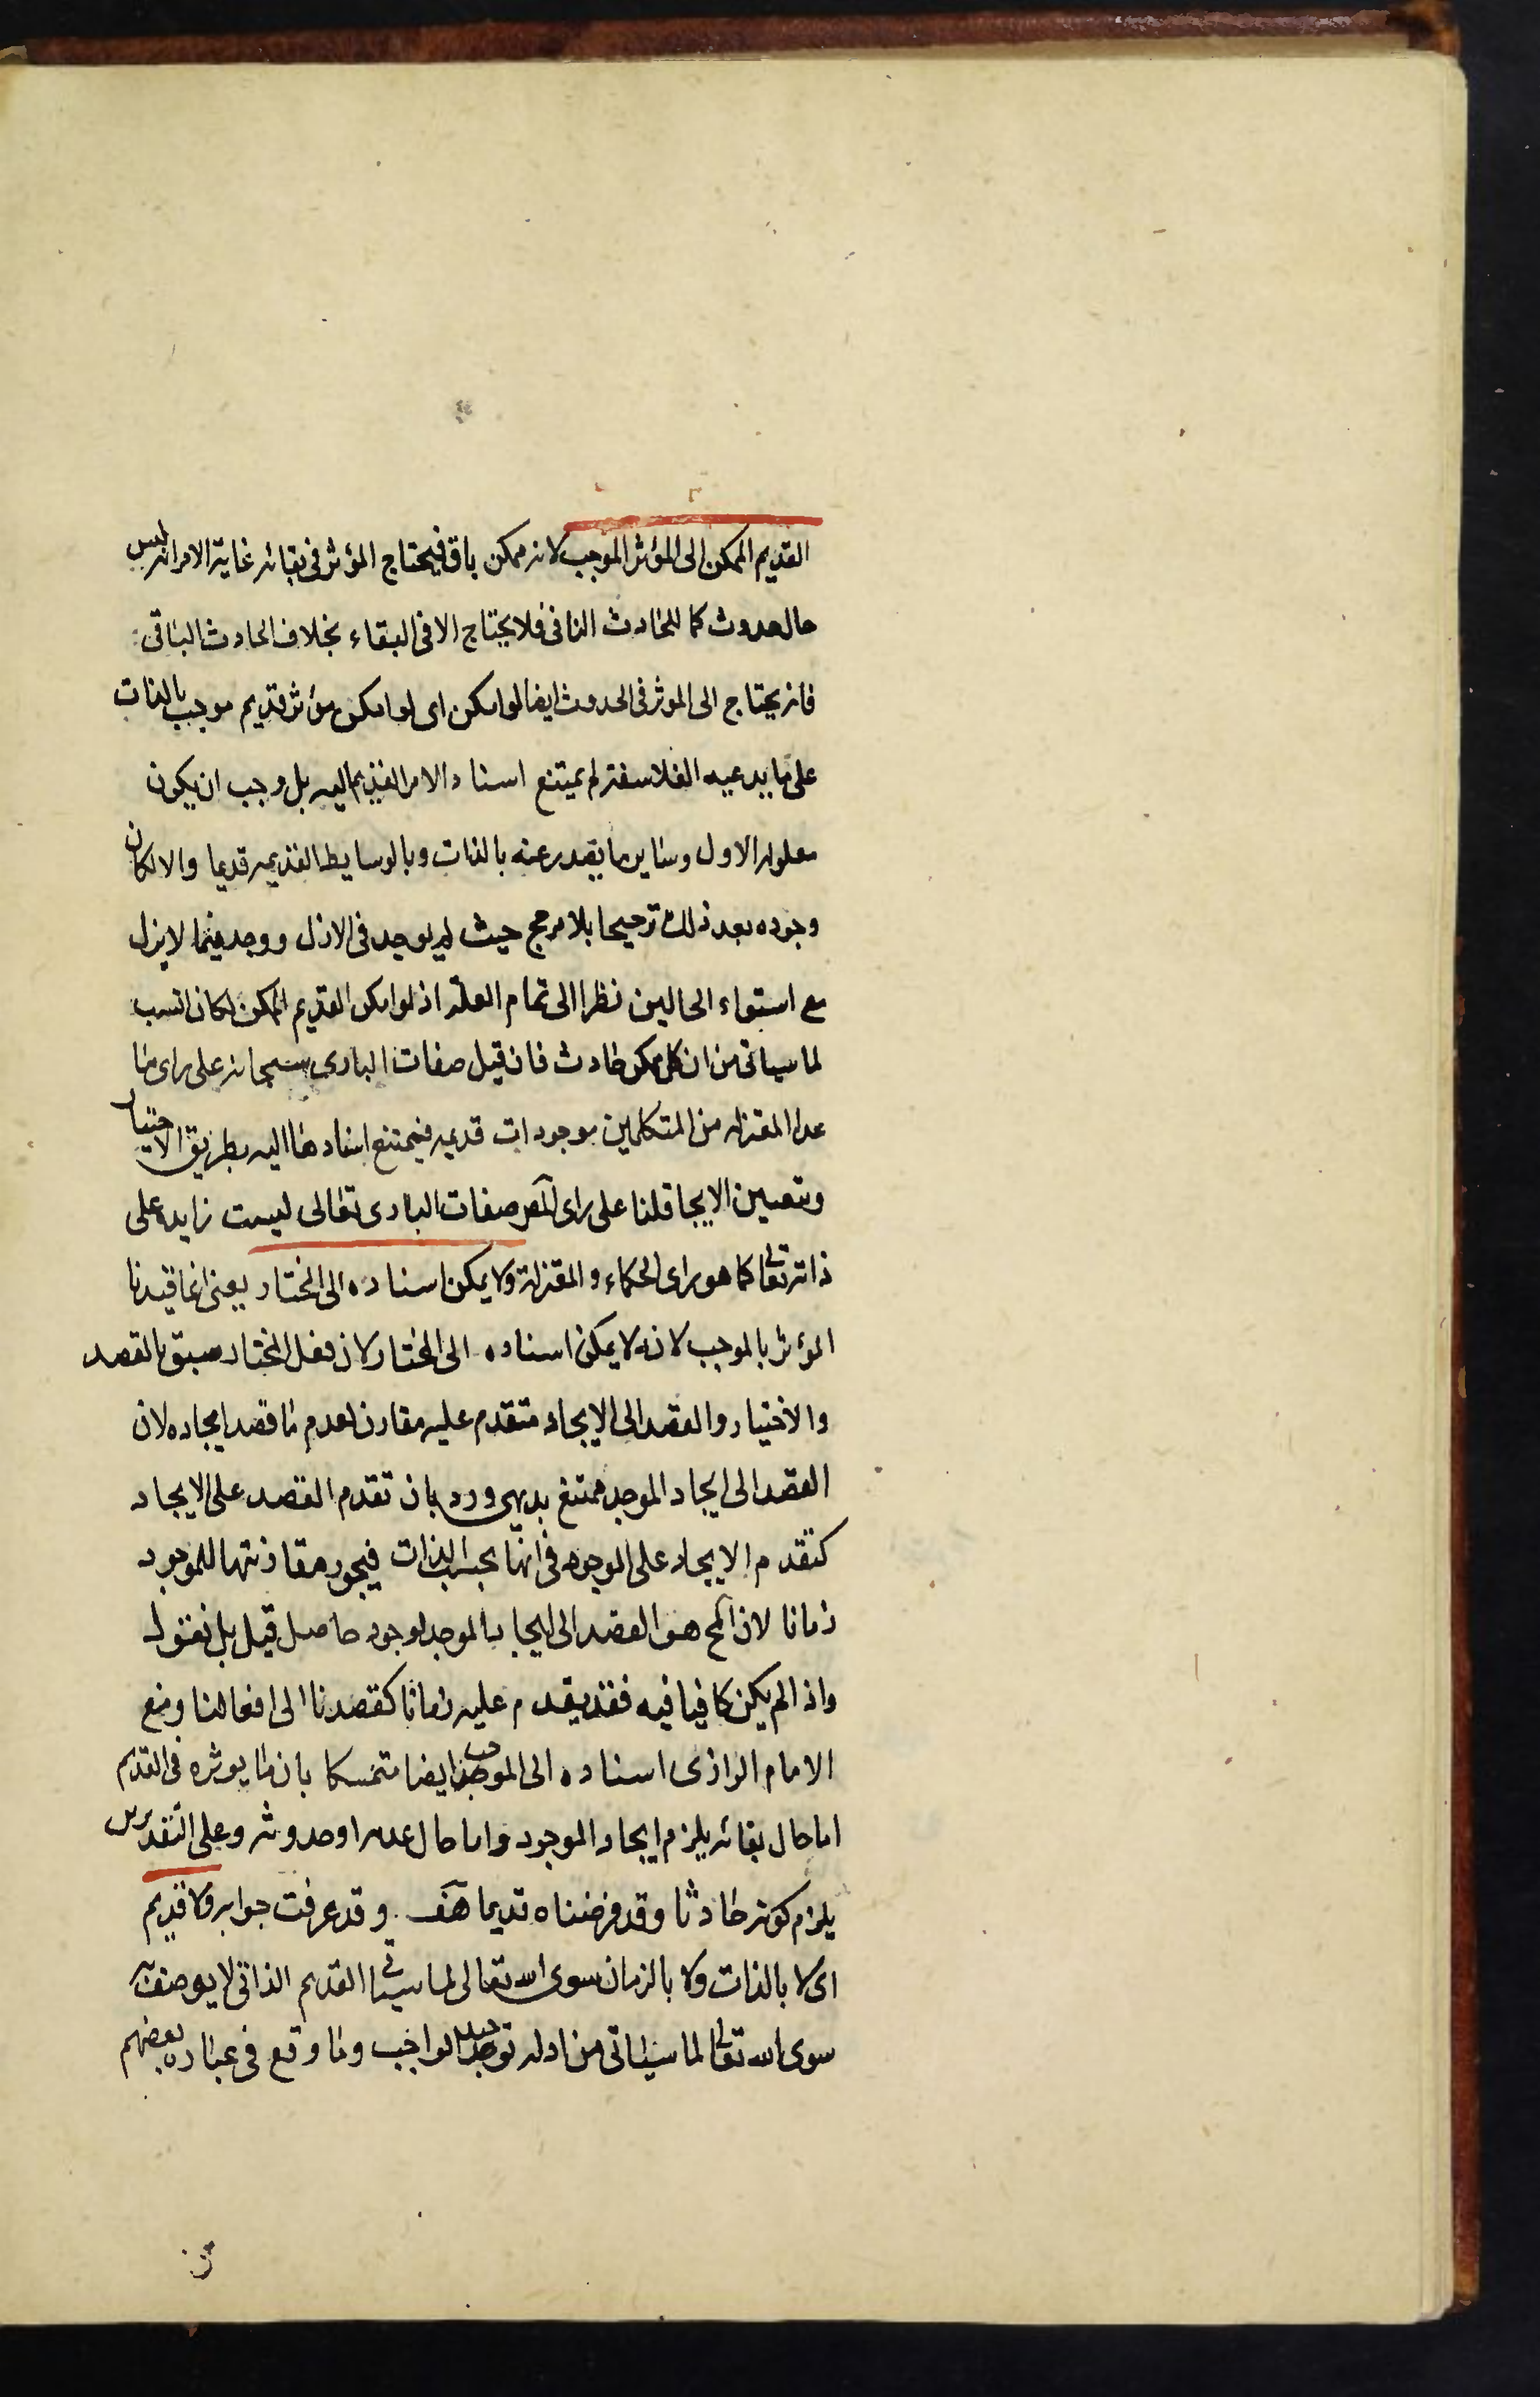 القديم الممكن الى المؤثر الموجب لانه ممكن باق فيحتاج المؤثر فى بقائه غاية الامر انه ليس
حال حدوث كما للحادث الثانى فلا يحتاج الا فى البقاء بخلاف الحادث الباقى
فانه يحتاج الى الموثر فى الحدوث ايضا لو امكن اى لو امكن مؤثر قديم موجب بالذات
على ما يدعيه الفلاسفة لم يمتنع اسناد الامر القديم اليه بل وجب ان يكون
معلوله الاول وساير ما يصدر عنه بالذات وبالوسايط القديمه قديما والا لكان
وجوده بعد ذلك ترجيحا بلا مرجح حيث لم يوجد فى الازل ووجد فيما لا يزل
مع استواء الحالين نظرا الى تمام العلة اذ لو امكن القديم الممكن لكان انسب
لما سياتى من ان كل ممكن حادث فان قيل صفات البارى سبحانه على راى ما
عدا المعتزله من المتكلمين موجودات قديمه فيمتنع اسنادها اليه بطريق الاختيار
ويتعين الايجا قلنا على راى المص صفات البارى تعالى ليست زايده على
ذاته تعالى كما هو راى الحكماء والمعتزلة ولا يمكن اسناده الى المختار يعنى انما قيدنا
المؤثر بالموجب لانه لا يمكن اسناده الى المختار لان فعل المختار مسبق بالقصد
والاختيار والقصد الى الايجاد متقدم عليه مقارن لعدم ما قصد ايجاده لان
القصد الى ايجاد الموجد ممتنع بديهى ورد بان تقدم القصد على الايجاد
كتقدم الايجاد على الموجود فى انها بحسب الذات فيجوز مقارنتها للموجود
زمانا لان المح هو القصد الى ايجاد الموجد بوجود حاصل قبل بل نقول
واذا لم يكن كافيا فيه فقد يقدم عليه زمانا كقصدنا الى افعالنا ومنع
الامام الرازى اسناده الى الموجب ايضا متمسكا بان تاثيره فى القديم
اما حال بقائه يلزم ايجاد الموجود واما حال عدمه او حدوثه وعلى التقديرين
يلزم كونه حادثا وقد فرضناه قديما هف وقد عرفت جوابه ولا قديم
اى لا بالذات ولا بالزمان سوى الله تعالى لما سياتى القديم الذاتى لا يوصف به
سوى الله تعالى لما سياتى من ادله توحيد الواجب وما وقع فى عباره بعضهم